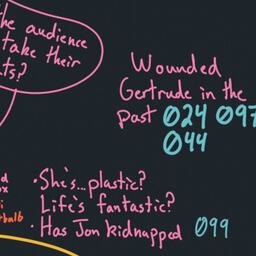 the audience
take their
ts?
Wounded
Gertrude in the
past 024 097
044
• She's...plastic?
Life's fantastic?
• Has Jon kidnapped 099